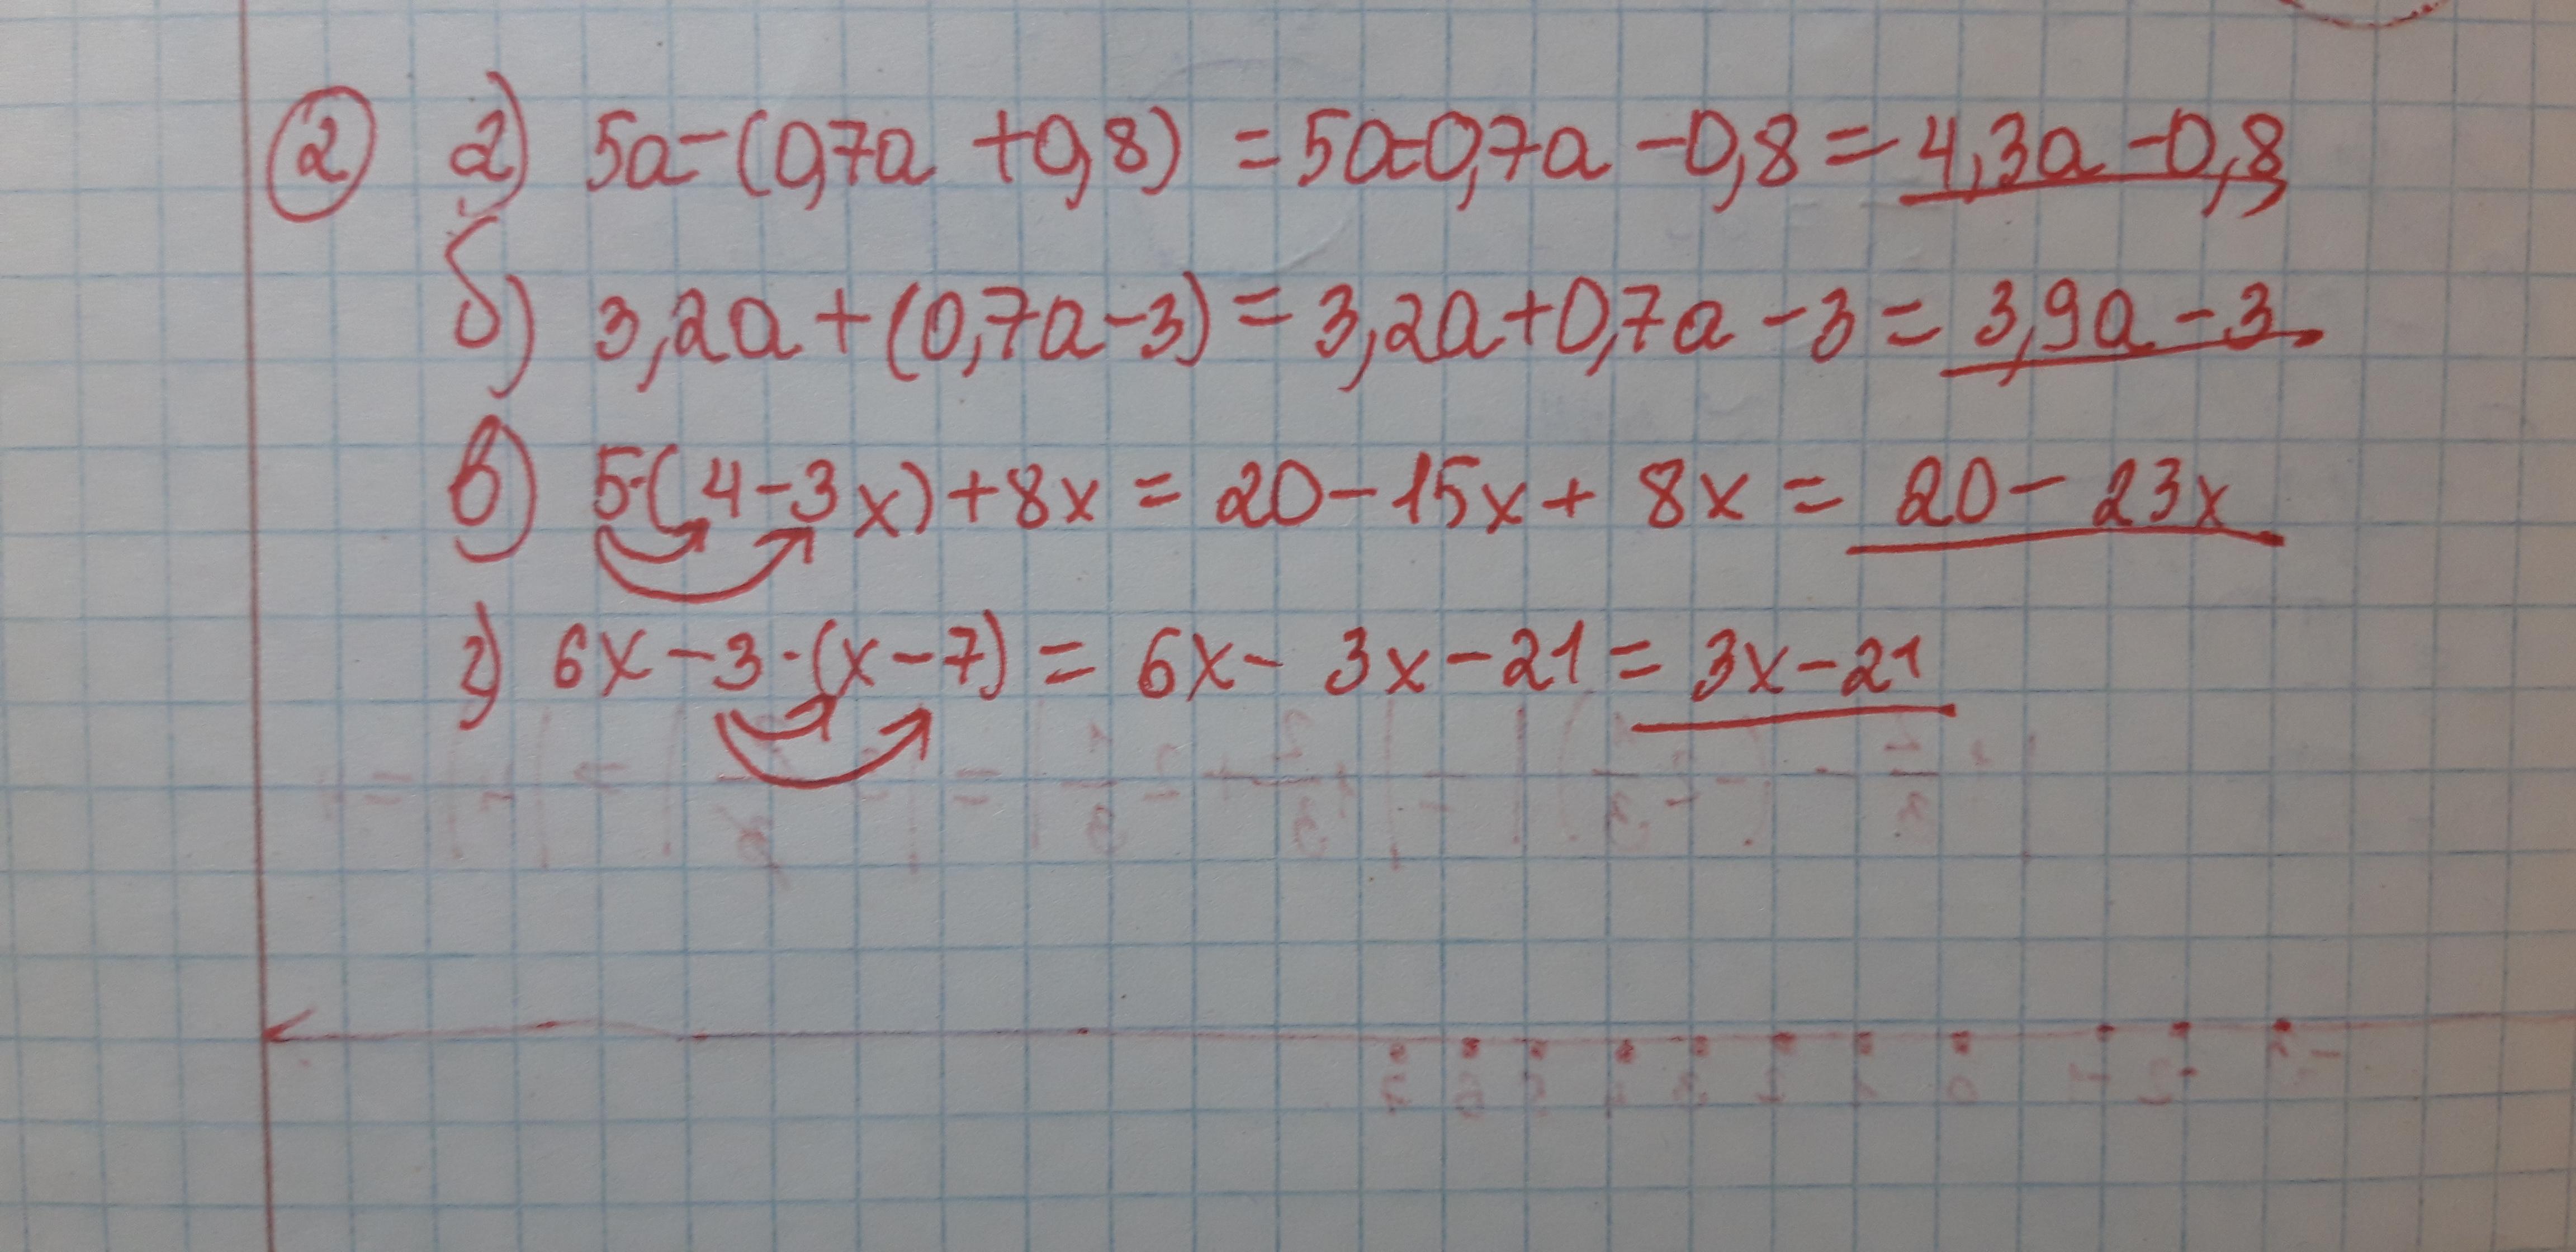 ② а) 5a-(0,7a +0,8) =5a-0,7a -0,8= 4,3a -0,8
б) 3,2a+(0,7a-3)= 3,2a+0,7a -3= 3,9a-3
в) 5·(4-3x)+8x= 20-15x+ 8x= 20- 23x
г) 6x-3·(x-7)= 6x- 3x-21= 3x-21